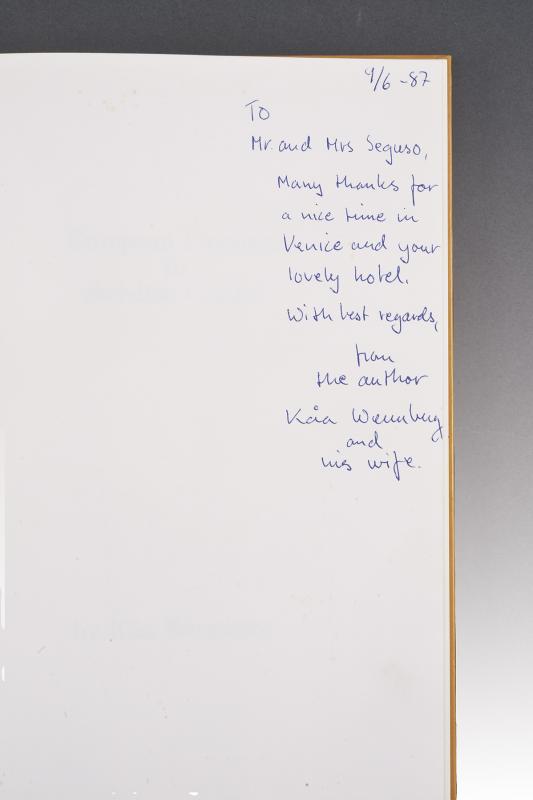 4/6 -87
To
Mr. and Mrs Seguso,
Many thanks for
a nice time in
Venice and your
lovely hotel.
With best regards,
from
the author
Kåa Wennberg
and
his wife.